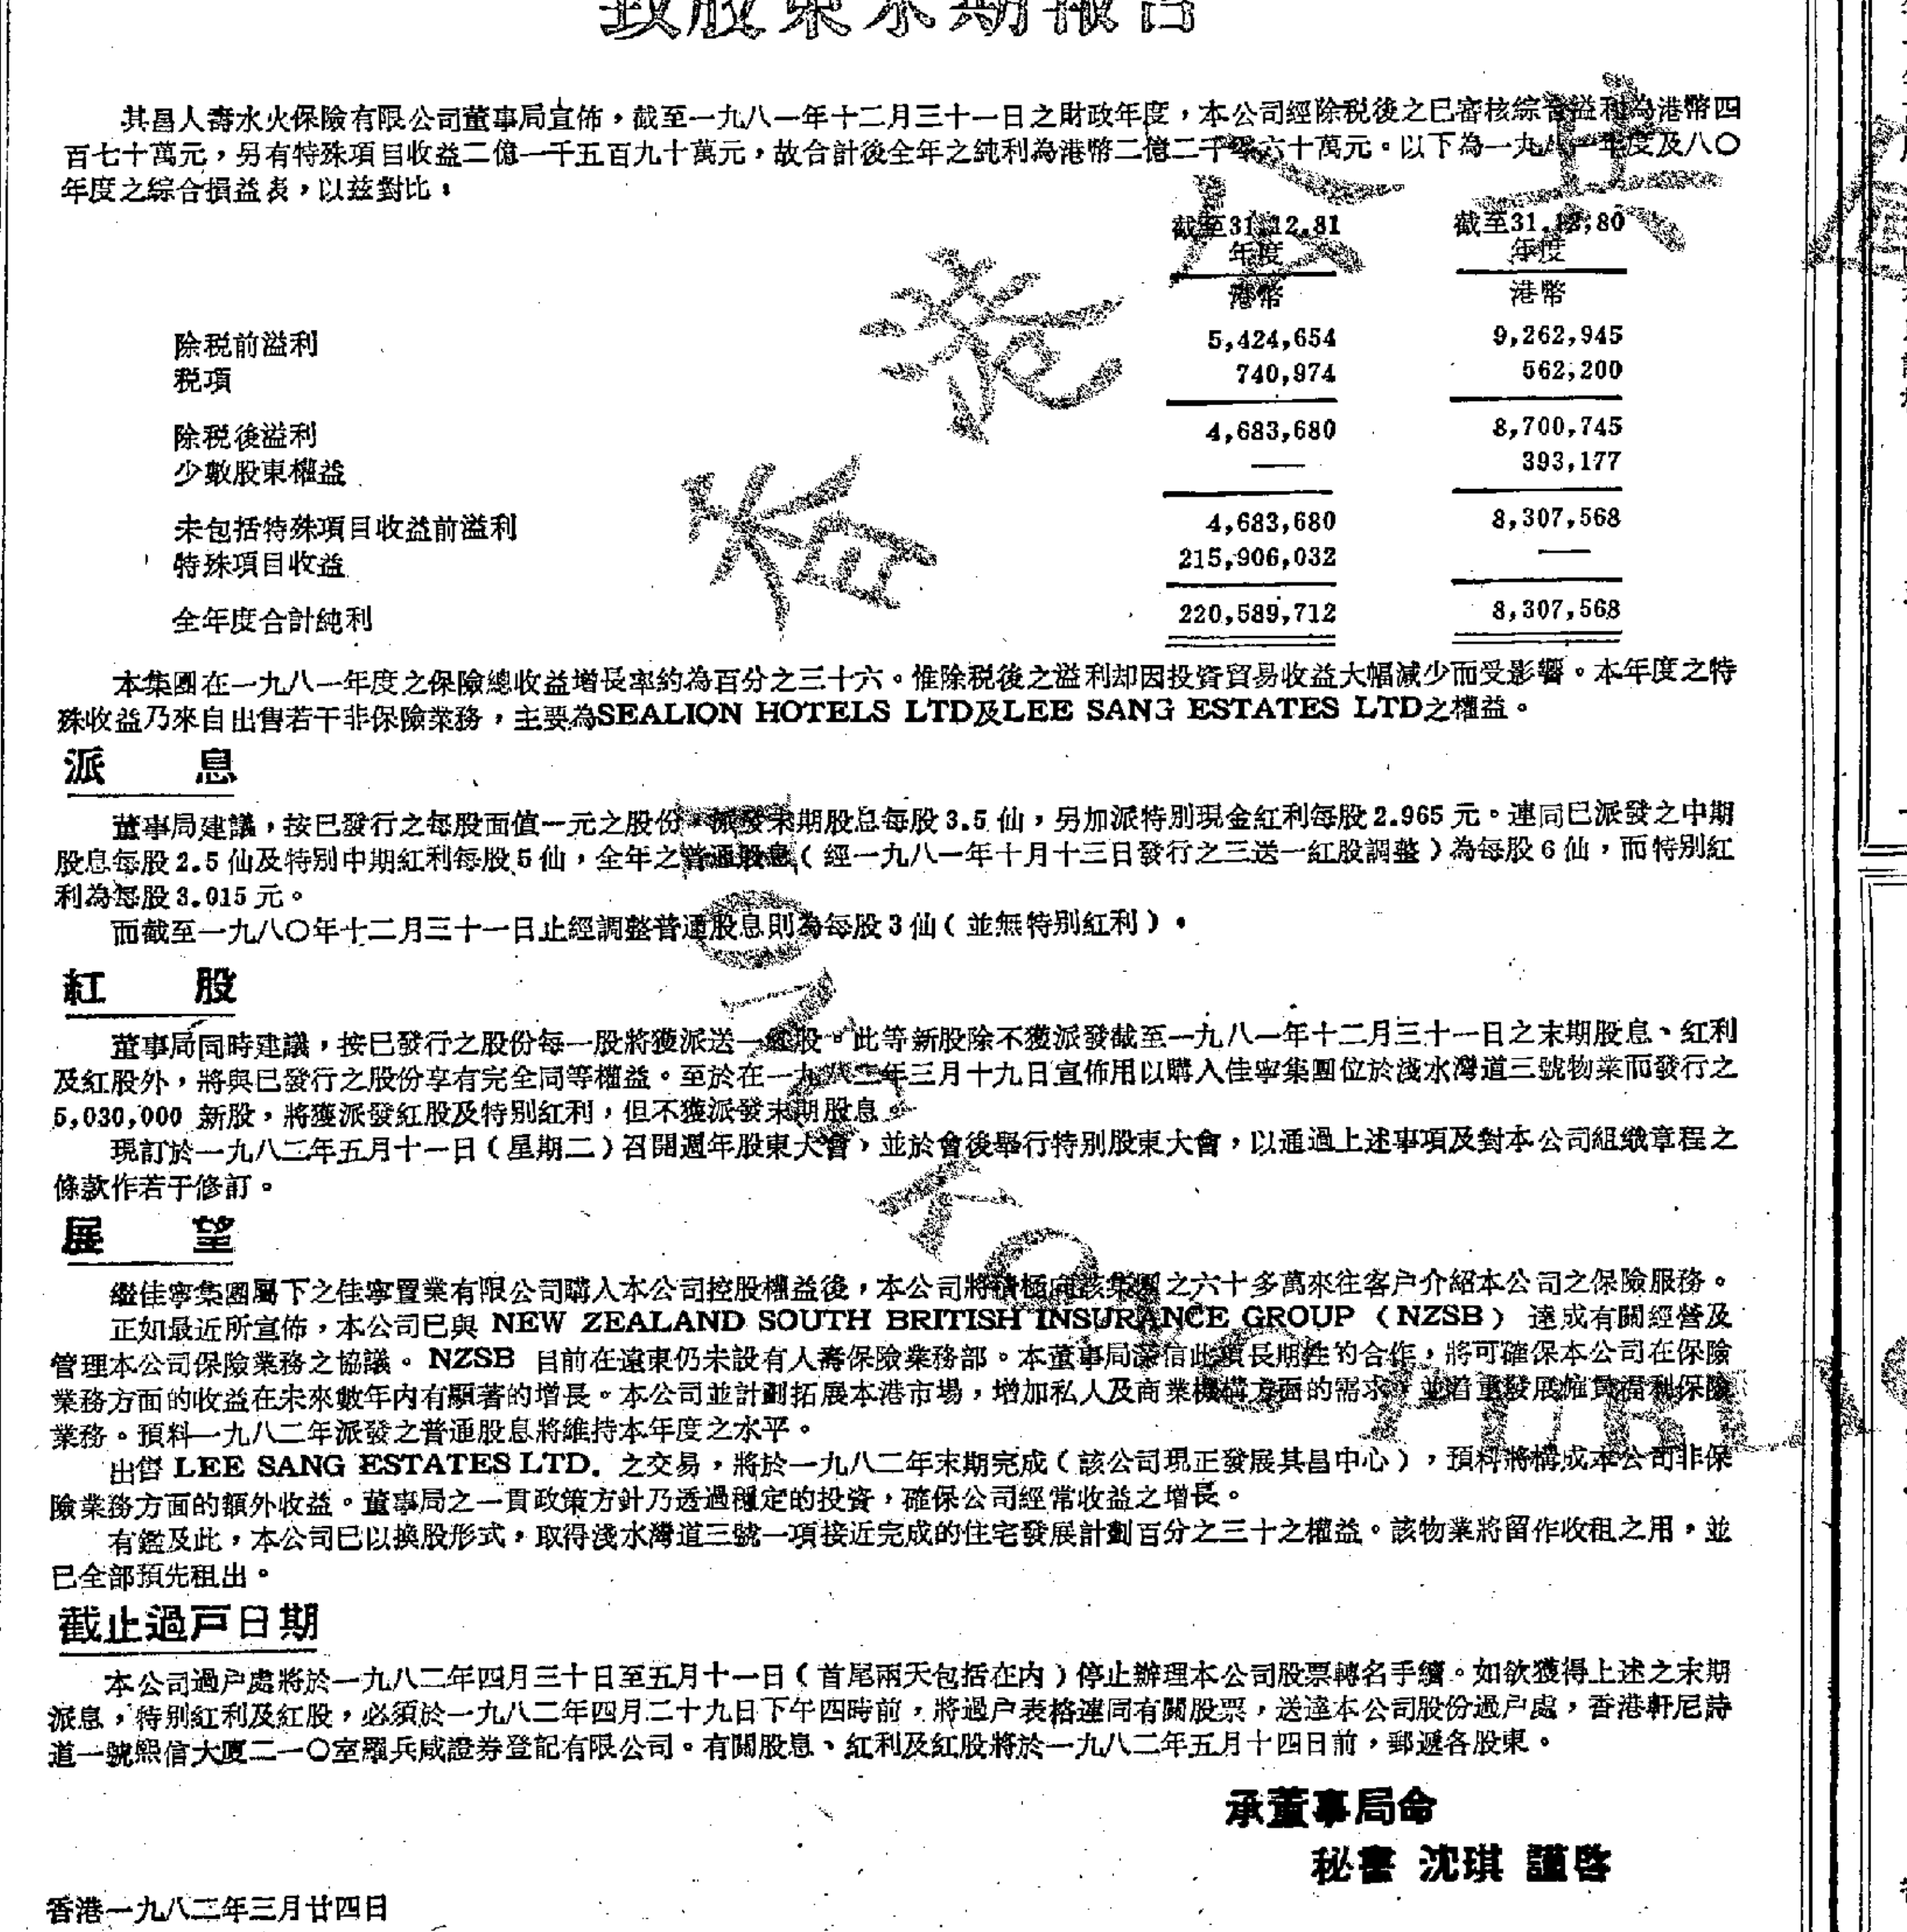 致股東末期報告
其昌人壽水火保險有限公司董事局宣佈,截至一九八一年十二月三十一日之財政年度,本公司經除稅後之已審核綜合溢利為港幣四
百七十萬元,另有特殊項目收益二億一千五百九十萬元,故合計後全年之純利為港幣二億二千零六十萬元。以下為一九八一年度及八〇
年度之綜合損益表,以茲對比:
截至31.12.81 截至31.12.80
年度 年度
港幣 港幣
除稅前溢利 5,424,654 9,262,945
稅項 740,974 562,200
除稅後溢利 4,683,680 8,700,745
少數股東權益 — 393,177
未包括特殊項目收益前溢利 4,683,680 8,307,568
特殊項目收益 215,906,032 —
全年度合計純利 220,589,712 8,307,568
本集團在一九八一年度之保險總收益增長率約為百分之三十六。惟除稅後之溢利却因投資貿易收益大幅減少而受影響。本年度之特
殊收益乃來自出售若干非保險業務,主要為SEALION HOTELS LTD及LEE SANG ESTATES LTD之權益。
派息
董事局建議,按已發行之每股面值一元之股份,派發末期股息每股3.5仙,另加派特別現金紅利每股2.965元。連同已派發之中期
股息每股2.5仙及特別中期紅利每股5仙,全年之普通股息(經一九八一年十月十三日發行之三送一紅股調整)為每股6仙,而特別紅
利為每股3.015元。
而截至一九八〇年十二月三十一日止經調整普通股息則為每股3仙(並無特別紅利)。
紅股
董事局同時建議,按已發行之股份每一股將獲派送一紅股。此等新股除不獲派發截至一九八一年十二月三十一日之末期股息、紅利
及紅股外,將與已發行之股份享有完全同等權益。至於在一九八二年三月十九日宣佈用以購入佳寧集團位於淺水灣道三號物業而發行之
5,030,000 新股,將獲派發紅股及特別紅利,但不獲派發末期股息。
現訂於一九八二年五月十一日(星期二)召開週年股東大會,並於會後舉行特別股東大會,以通過上述事項及對本公司組織章程之
條款作若干修訂。
展望
繼佳寧集團屬下之佳寧置業有限公司購入本公司控股權益後,本公司將積極向該集團之六十多萬來往客戶介紹本公司之保險服務。
正如最近所宣佈,本公司已與 NEW ZEALAND SOUTH BRITISH INSURANCE GROUP (NZSB) 達成有關經營及
管理本公司保險業務之協議。NZSB 目前在遠東仍未設有人壽保險業務部。本董事局深信此項長期性的合作,將可確保本公司在保險
業務方面的收益在未來數年內有顯著的增長。本公司並計劃拓展本港市場,增加私人及商業機構方面的需求,並着重發展僱員福利保險
業務。預料一九八二年派發之普通股息將維持本年度之水平。
出售 LEE SANG ESTATES LTD. 之交易,將於一九八二年末期完成(該公司現正發展其昌中心),預料將構成本公司非保
險業務方面的額外收益。董事局之一貫政策方針乃透過穩定的投資,確保公司經常收益之增長。
有鑑及此,本公司已以換股形式,取得淺水灣道三號一項接近完成的住宅發展計劃百分之三十之權益。該物業將留作收租之用,並
已全部預先租出。
截止過戶日期
本公司過戶處將於一九八二年四月三十日至五月十一日(首尾兩天包括在內)停止辦理本公司股票轉名手續。如欲獲得上述之末期
派息,特別紅利及紅股,必須於一九八二年四月二十九日下午四時前,將過戶表格連同有關股票,送達本公司股份過戶處,香港軒尼詩
道一號熙信大廈二一〇室羅兵咸證券登記有限公司。有關股息、紅利及紅股將於一九八二年五月十四日前,郵遞各股東。
承董事局命
秘書 沈琪 謹啓
香港一九八二年三月廿四日